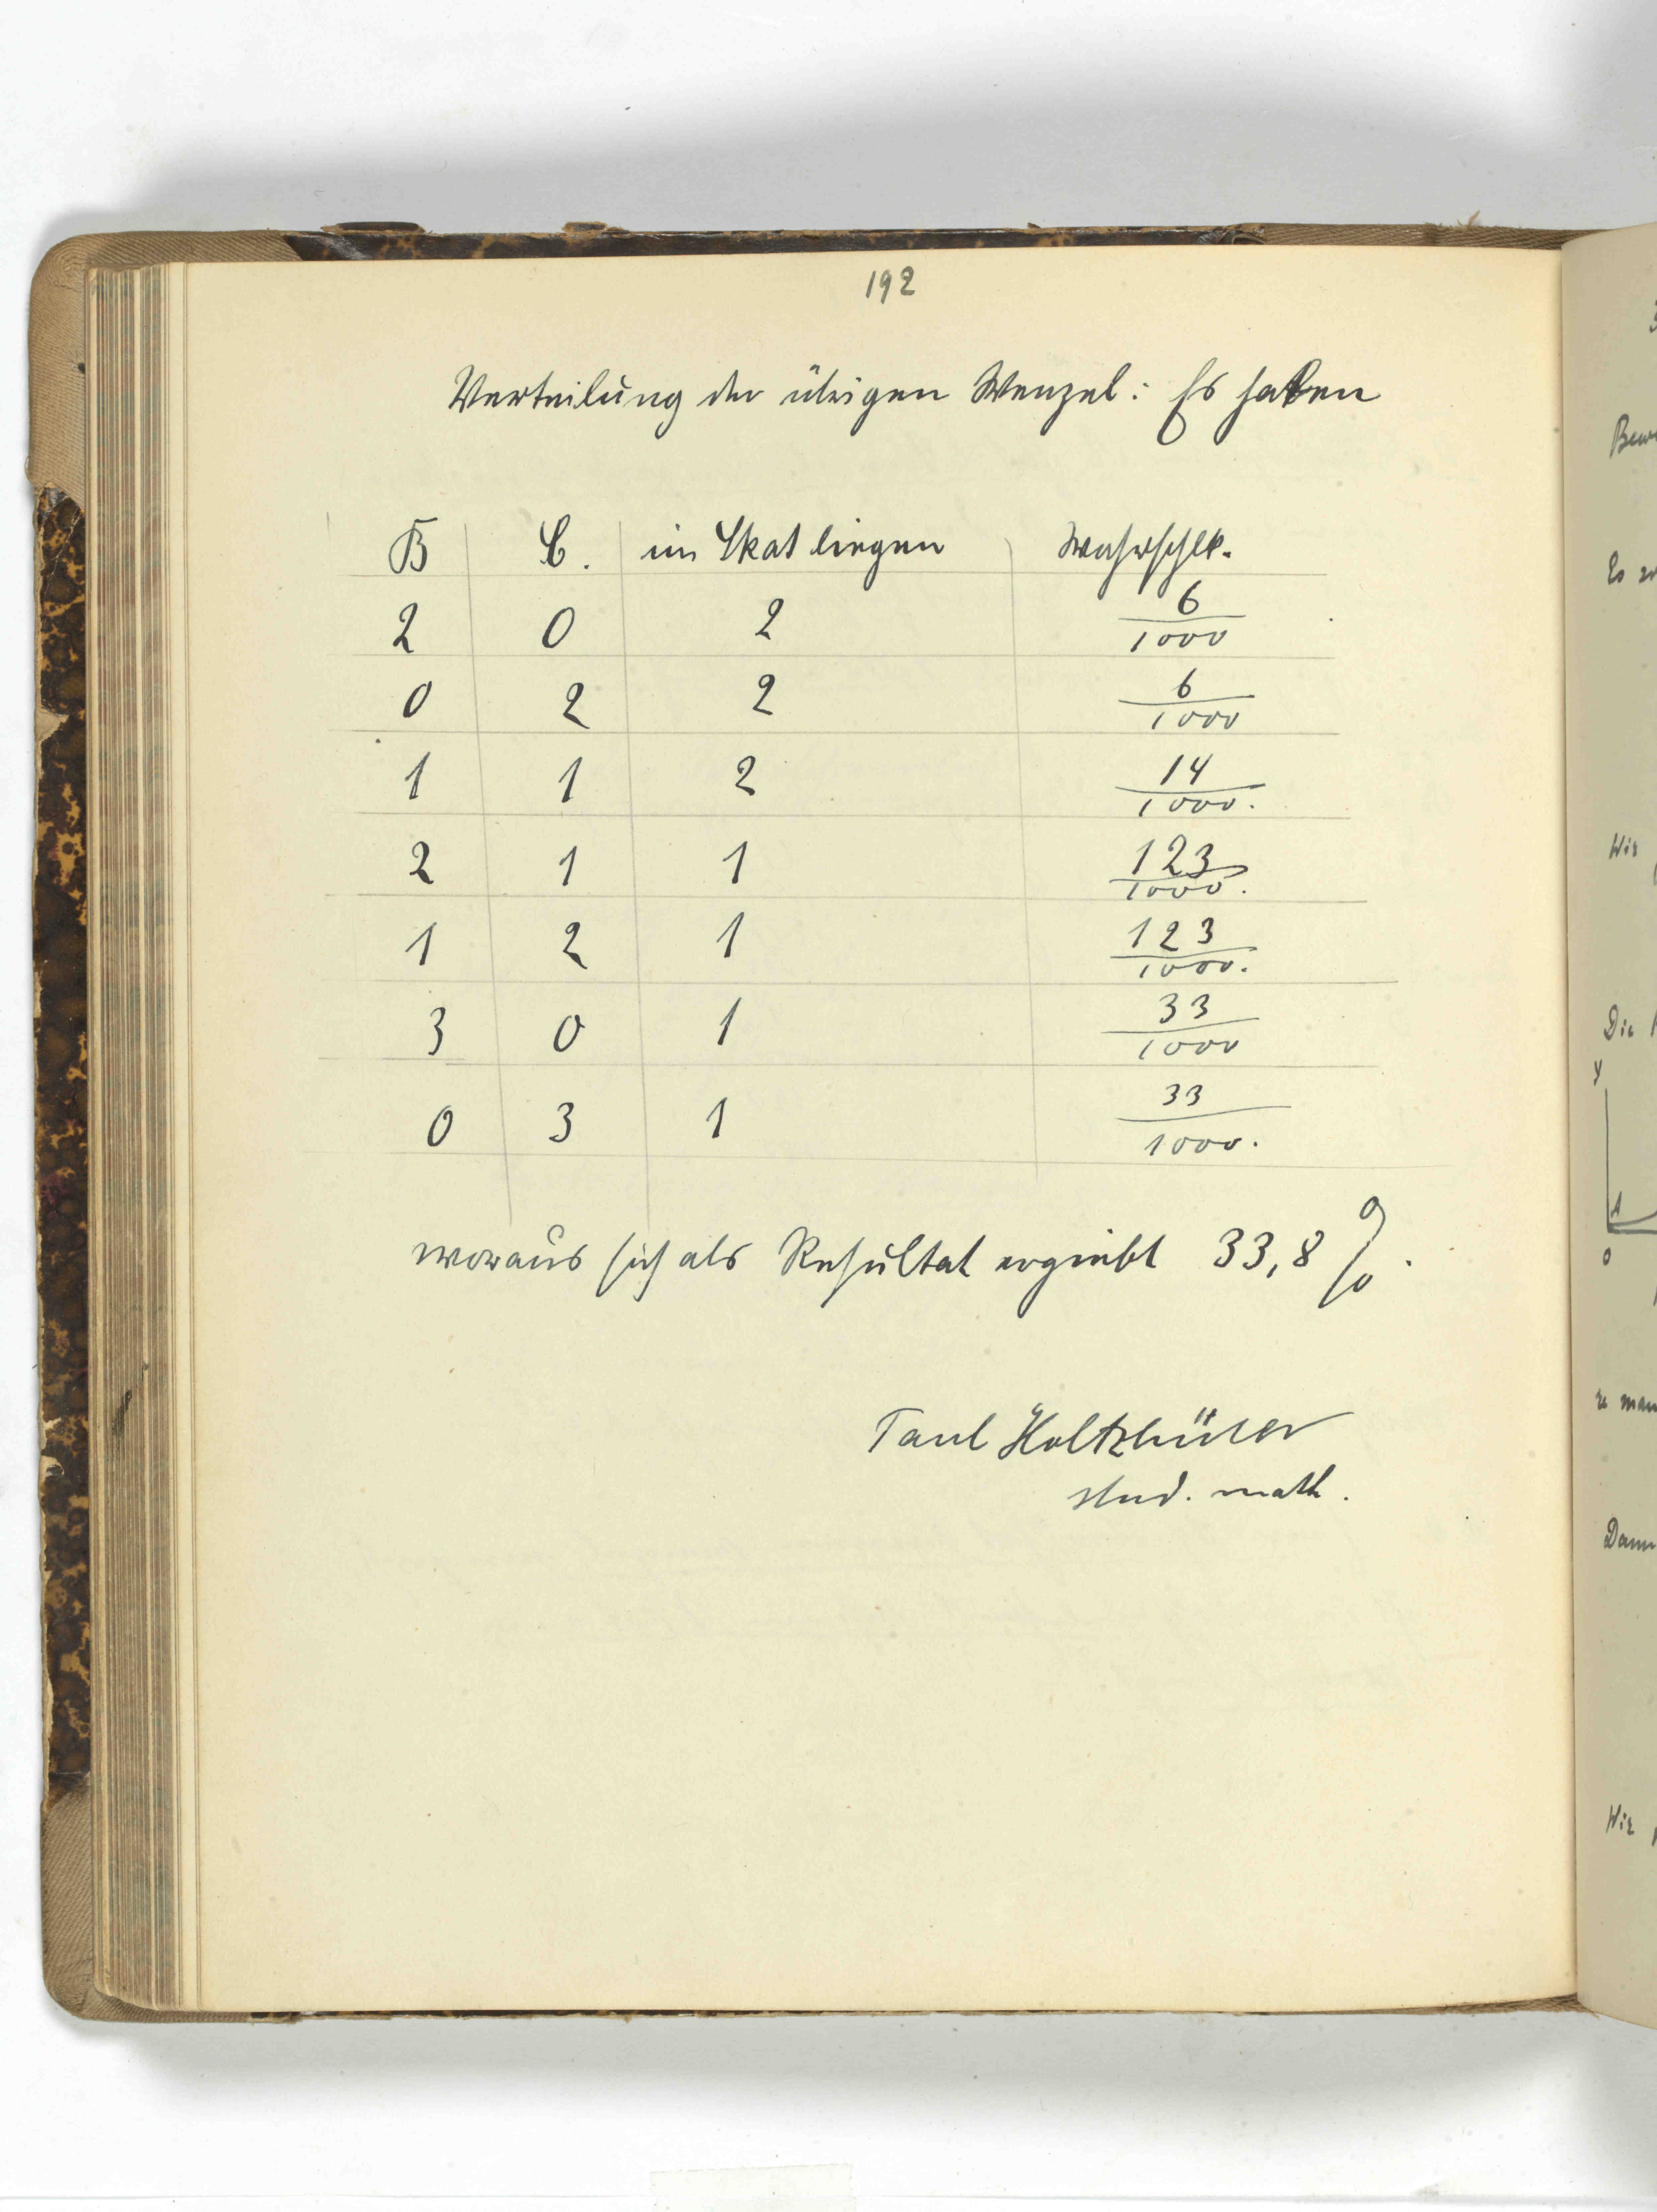 192
Verteilung der übrigen Wenzel: Es haben
B C. im Skat liegen Wahrschlk.
2 0 2 6/1000
0 2 2 6/1000
1 1 2 14/1000.
2 1 1 123/1000.
1 2 1 123/1000.
3 0 1 33/1000
0 3 1 33/1000.
woraus sich als Resultat ergiebt 33,8 %.
Paul
stud. math.
Es
Wir
Die
y
0
Wir